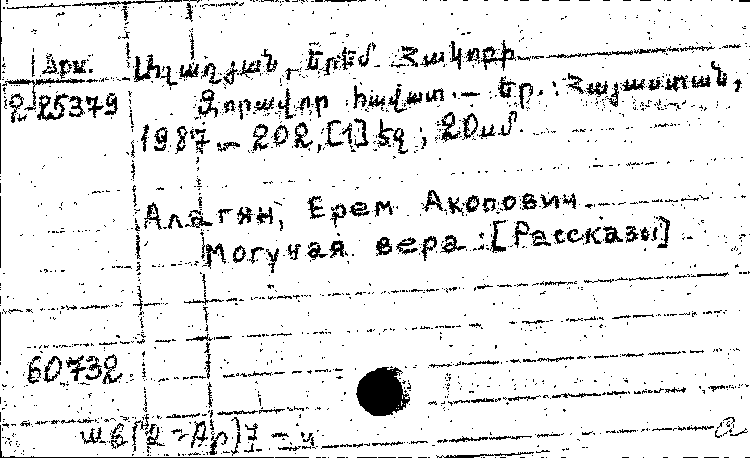 Արմ. Ալաղյան, Երեմ Հակոբի
2-25379 Զորավոր հավատ. — Եր.: Հայաստան,
1987. — 202, [1] էջ ; 20սմ.
Алагян, Ерем Акопович.
Могучая вера : [Рассказы]
60732
ш6(2=Ар)7-4
a